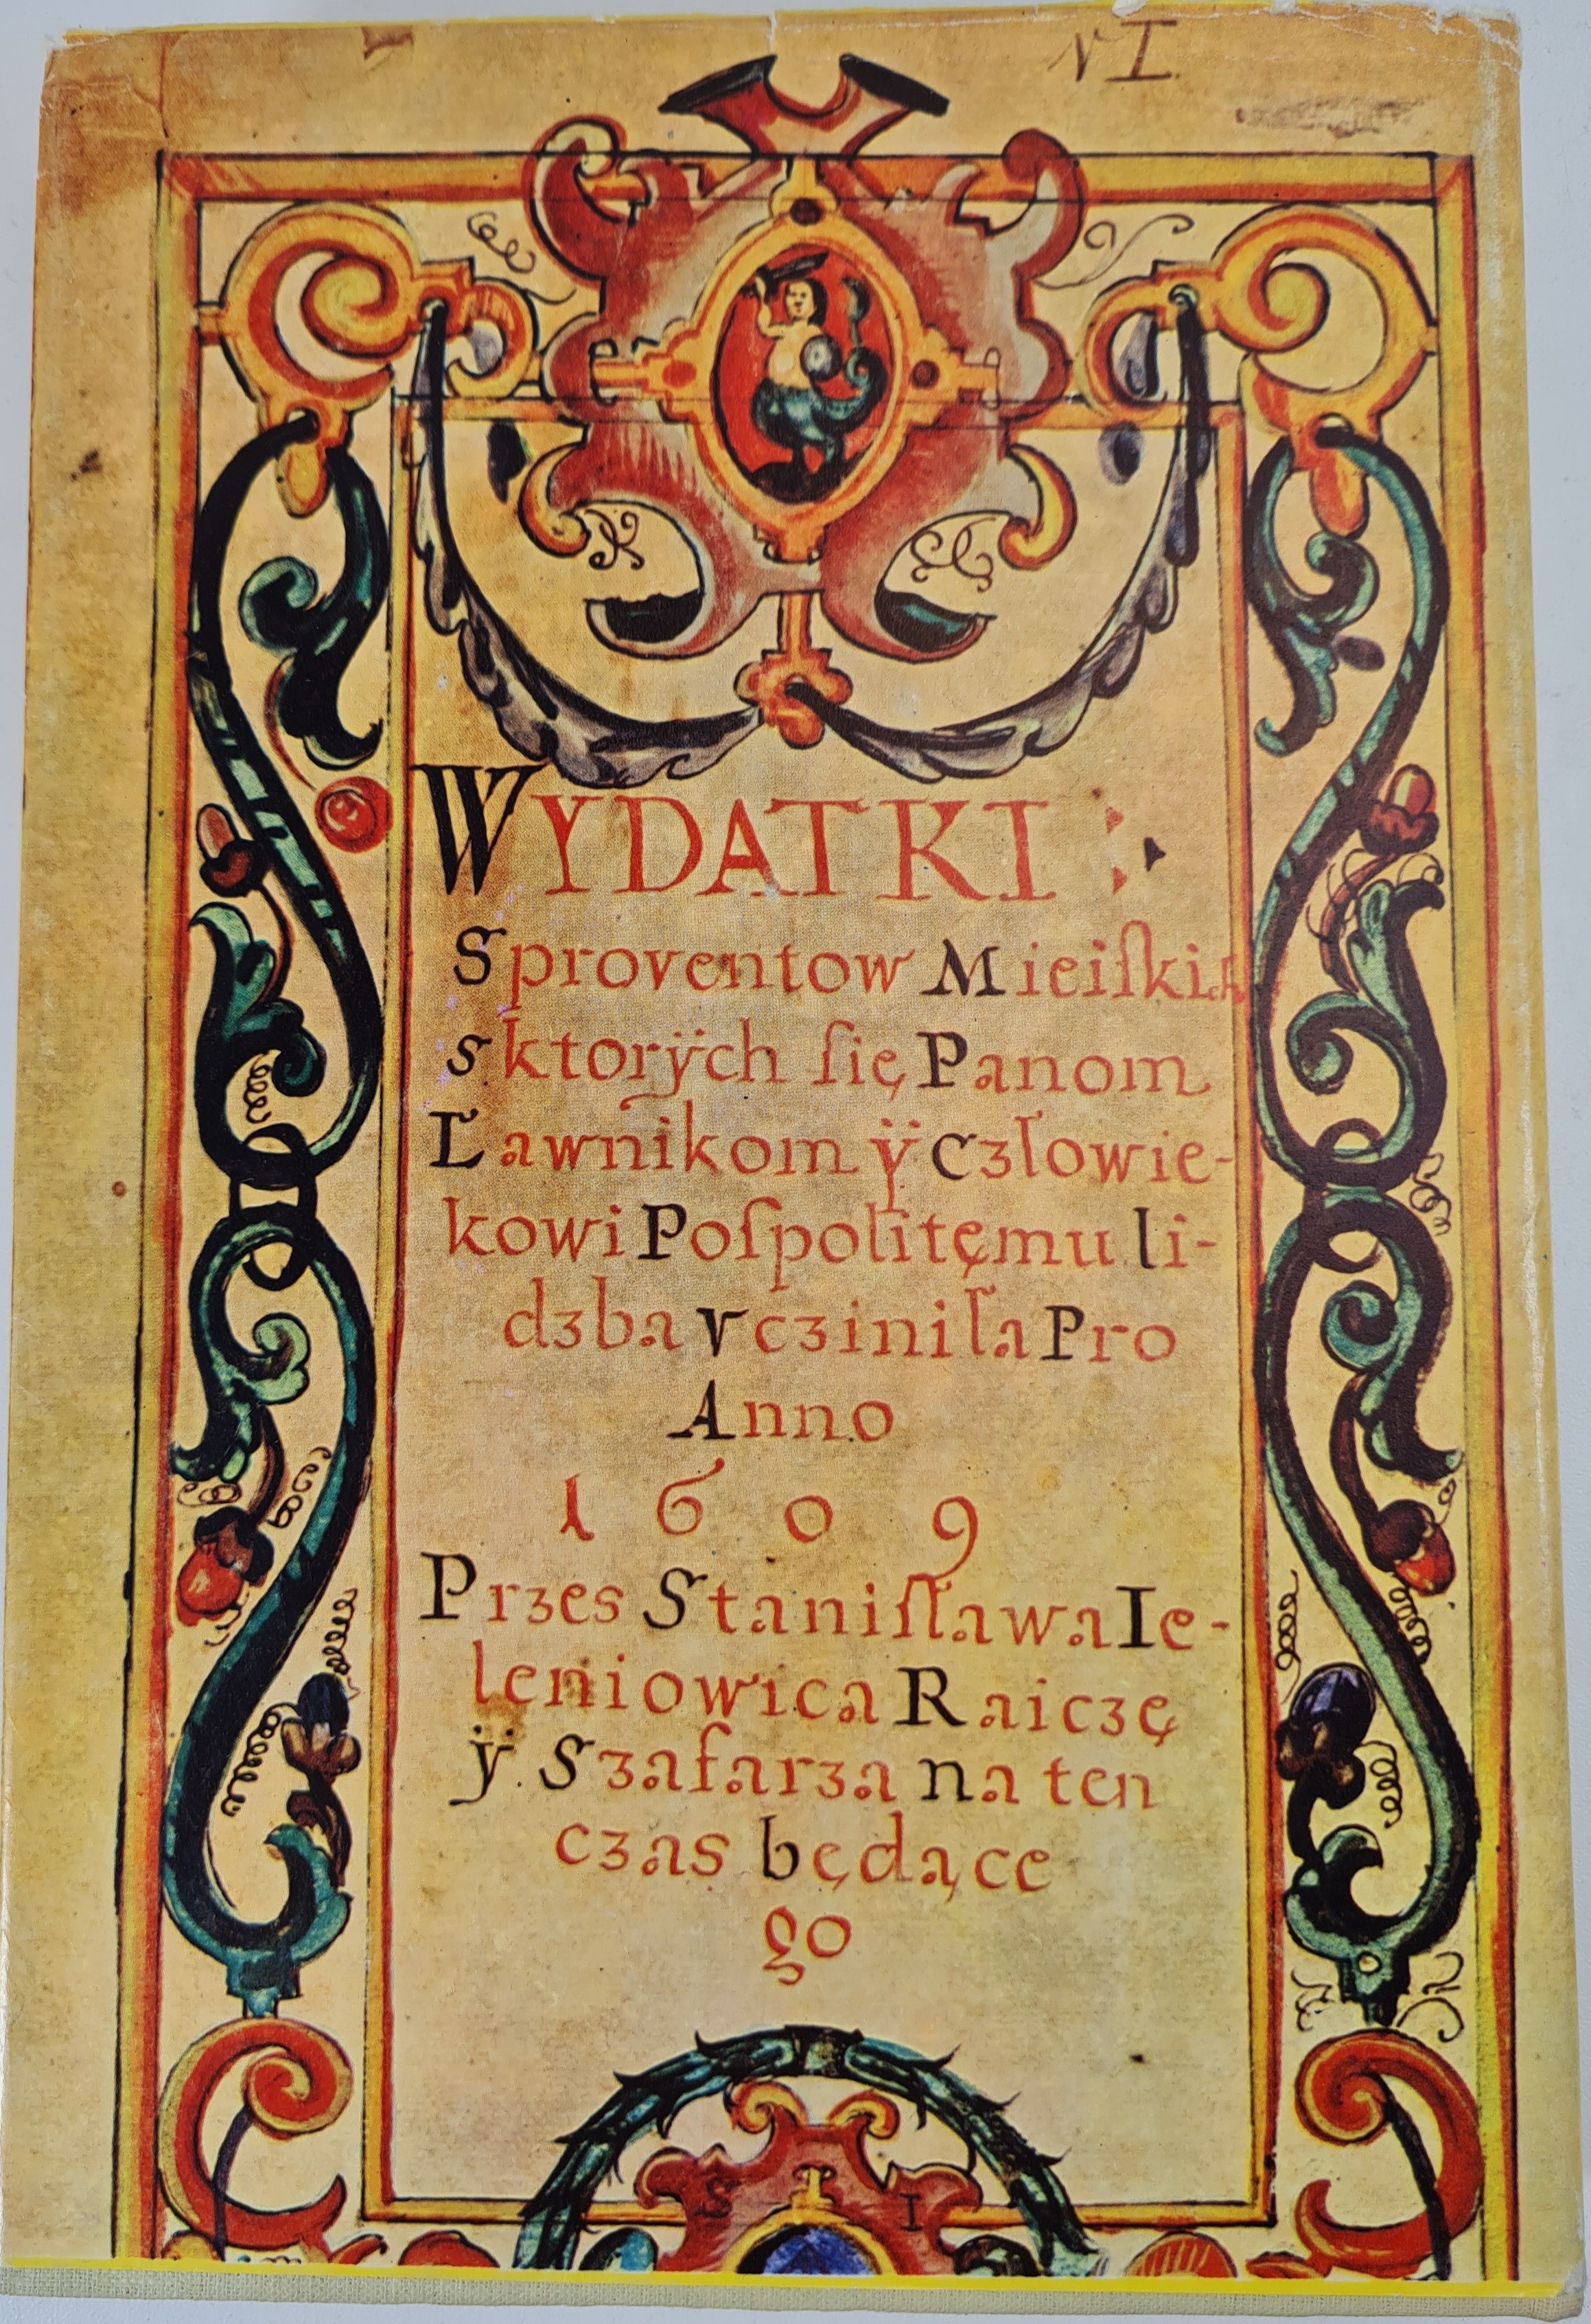 N I
WYDATKI :
Sproventow Mieiſkich
s ktorÿch ſię Panom
Ławnikom ÿ Człowie-
kowi Poſpolitęmu li-
dzba vcziniła Pro
Anno
1609
Przes Staniſława Ie-
leniowica Raiczę
ÿ. Szafarza na ten
czas będące
go
S I